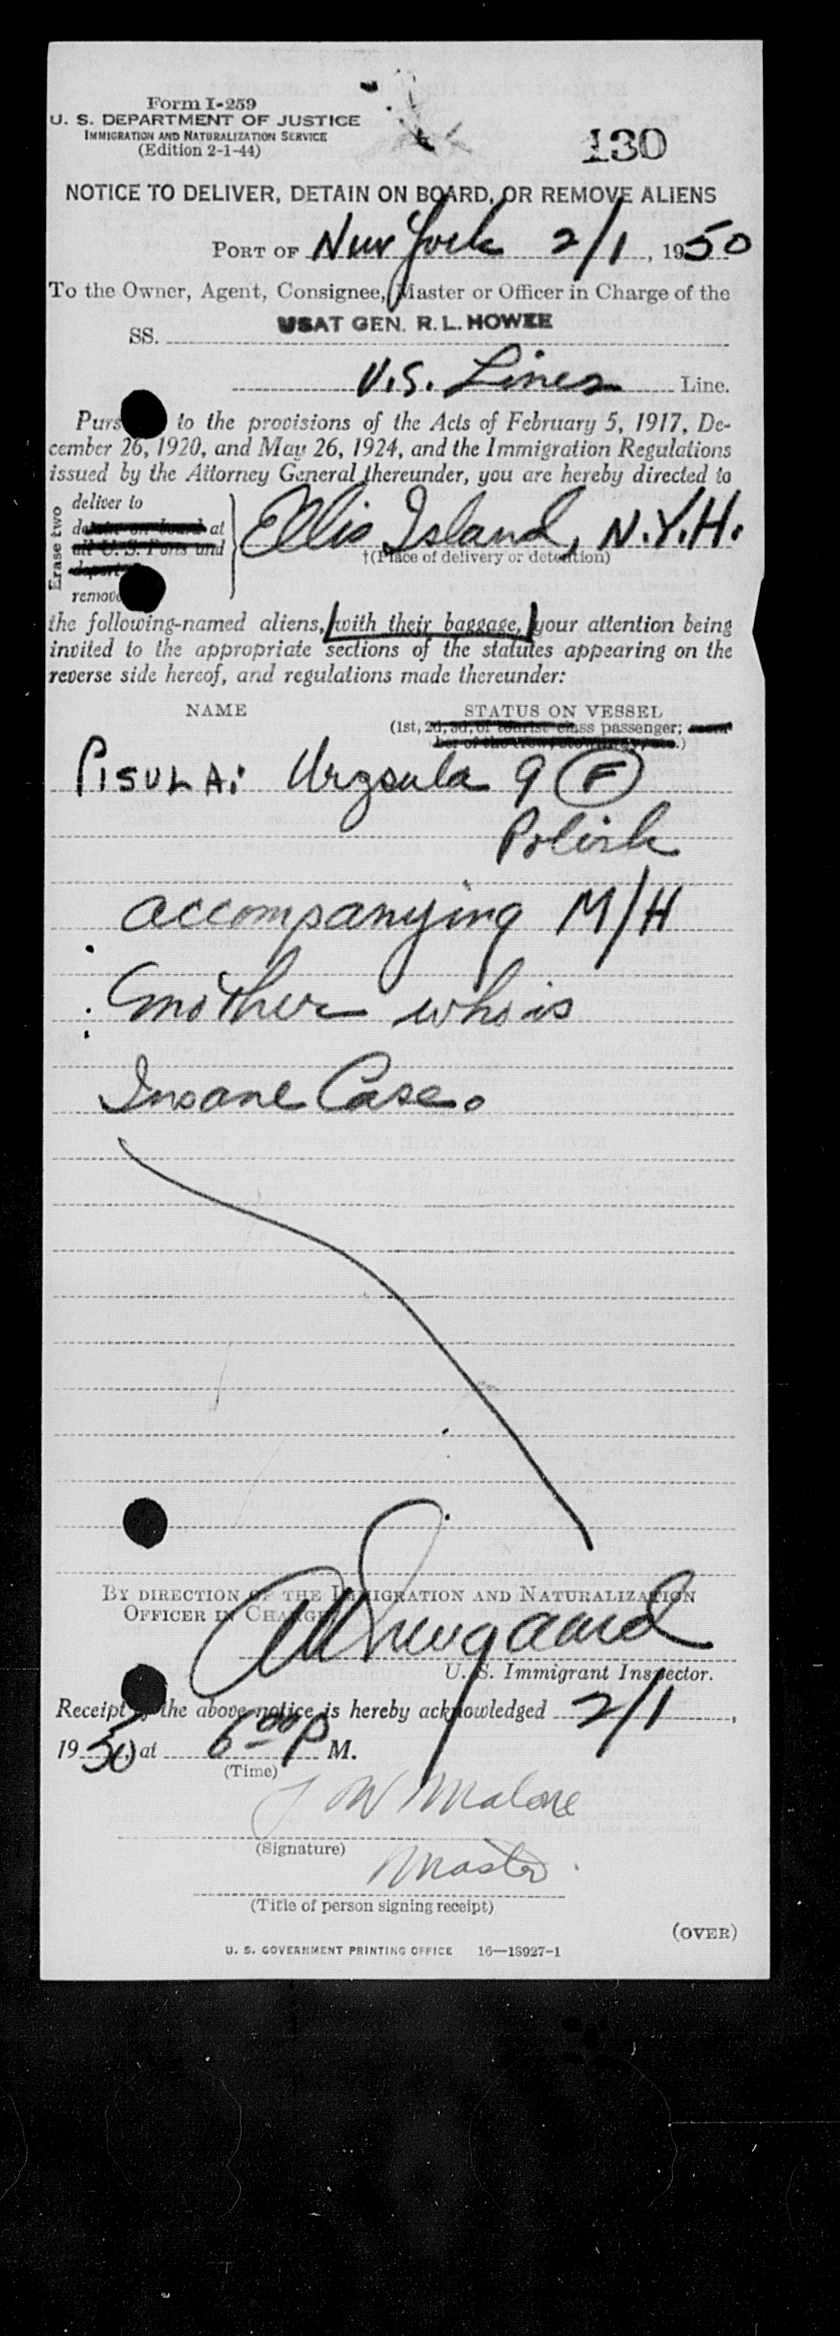 Form I-259
U. S. DEPARTMENT OF JUSTICE
IMMIGRATION AND NATURALIZATION SERVICE
(Edition 2-1-44)
130
NOTICE TO DELIVER, DETAIN ON BOARD, OR REMOVE ALIENS
PORT OF New York 2/1, 1950
To the Owner, Agent, Consignee, Master or Officer in Charge of the
SS. USAT GEN. R. L. HOWZE
U.S. Lines Line.
Purs to the provisions of the Acts of February 5, 1917, De-
cember 26, 1920, and May 26, 1924, and the Immigration Regulations
issued by the Attorney General thereunder, you are hereby directed to
Erase two
deliver to
detain on board at
all U. S. Ports and
deport
remove
Ellis Island, N.Y.H.
†(Place of delivery or detention)
the following-named aliens, [with their baggage,] your attention being
invited to the appropriate sections of the statutes appearing on the
reverse side hereof, and regulations made thereunder:
NAME STATUS ON VESSEL
(1st, 2d, 3d, or tourist class passenger; mem-
ber of the crew, stowaway, etc.)
PISULA: Urzsula 9 F
Polish
accompanying M/H
mother who is
Insane Case.
BY DIRECTION OF THE IMMIGRATION AND NATURALIZATION
OFFICER IN CHARGE
U. S. Immigrant Inspector.
Receipt of the above notice is hereby acknowledged 2/1,
1950, at 6 00 P M.
(Time)
W Malone
(Signature)
Master
(Title of person signing receipt)
(OVER)
U. S. GOVERNMENT PRINTING OFFICE 16—18927-1